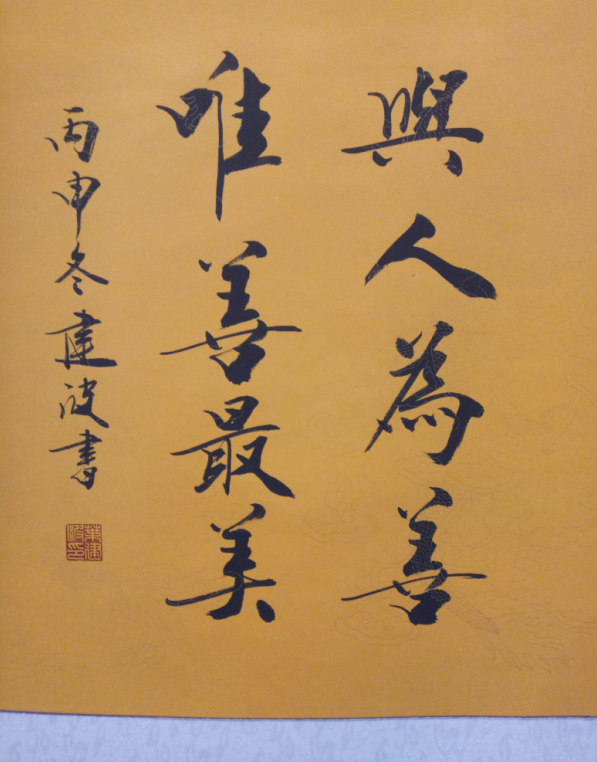 與人為善
唯善最美
丙申冬建波書